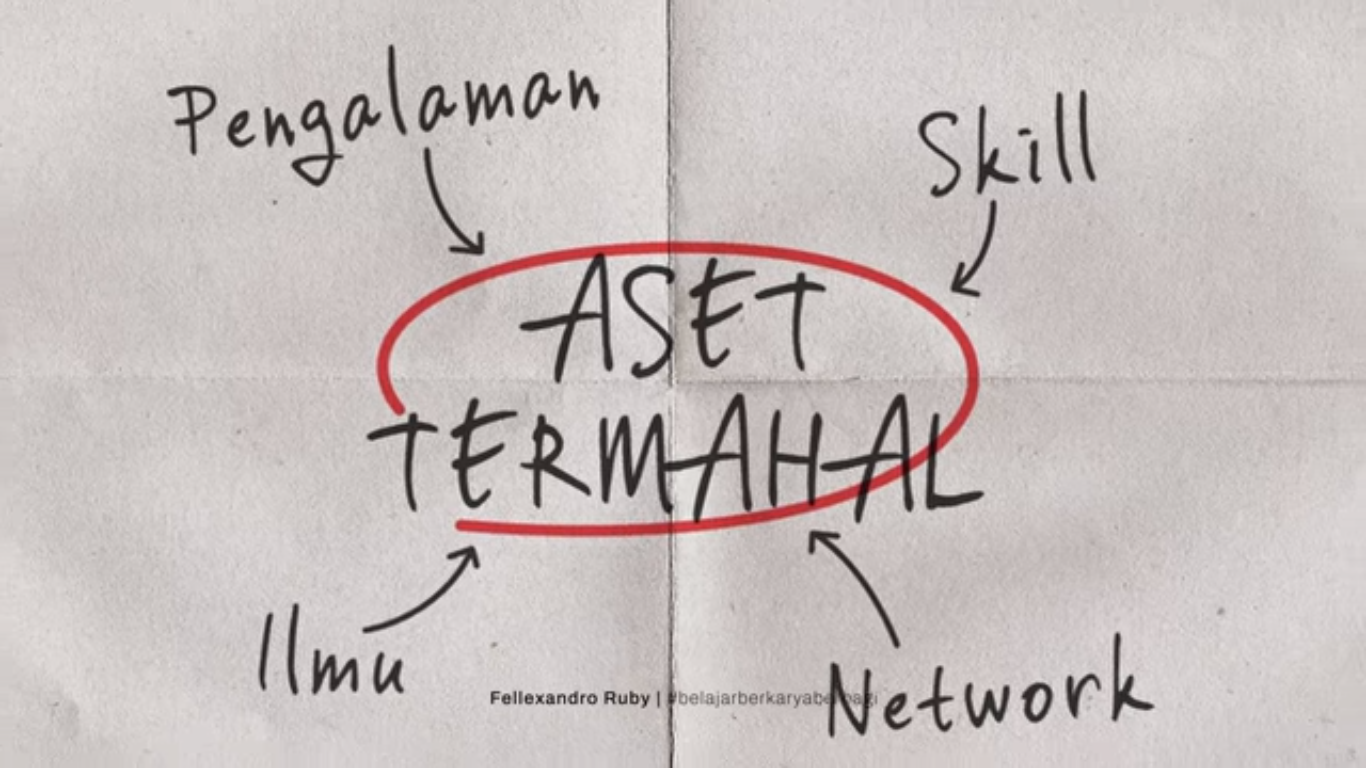 Pengalaman
Skill
ASET
TERMAHAL
Ilmu
Network
Fellexandro Ruby | #belajarberkaryaberbagi